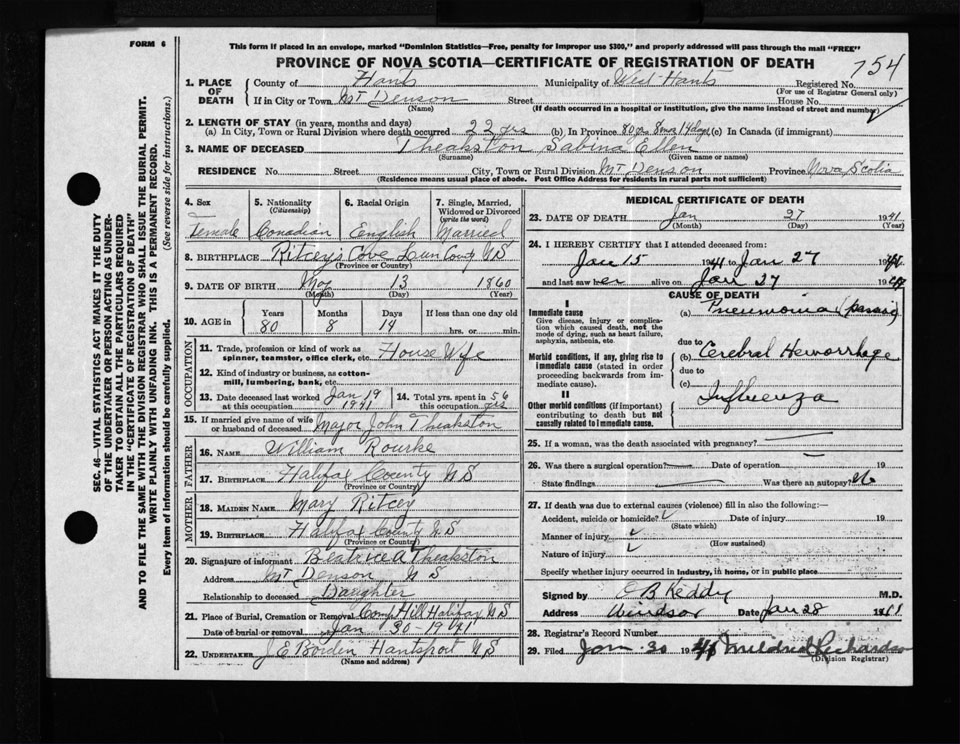 FORM 6
This form if placed in an envelope, marked "Dominion Statistics—Free, penalty for improper use $300," and properly addressed will pass through the mail "FREE"
PROVINCE OF NOVA SCOTIA—CERTIFICATE OF REGISTRATION OF DEATH
754
1. PLACE OF DEATH
County of Hants Municipality of West Hants Registered No.
(For use of Registrar General only)
If in City or Town Mt Denson Street House No.
(Name) (If death occurred in a hospital or institution, give the name instead of street and number)
2. LENGTH OF STAY (in years, months and days)
(a) In City, Town or Rural Division where death occurred 22 yrs (b) In Province 80 yrs 8 mos 14 days (c) In Canada (if immigrant)
3. NAME OF DECEASED Theakston Sabina Ellen
(Surname) (Given name or names)
RESIDENCE No. Street City, Town or Rural Division Mt Denson Province Nova Scotia
(Residence means usual place of abode. Post Office Address for residents in rural parts not sufficient)
SEC. 46—VITAL STATISTICS ACT MAKES IT THE DUTY
OF THE UNDERTAKER OR PERSON ACTING AS UNDER-
TAKER TO OBTAIN ALL THE PARTICULARS REQUIRED
IN THE "CERTIFICATE OF REGISTRATION OF DEATH"
AND TO FILE THE SAME WITH THE DIVISION REGISTRAR WHO SHALL ISSUE THE BURIAL PERMIT.
WRITE PLAINLY WITH UNFADING INK. THIS IS A PERMANENT RECORD.
Every item of information should be carefully supplied. (See reverse side for instructions.)
4. Sex 5. Nationality (Citizenship) 6. Racial Origin 7. Single, Married, Widowed or Divorced (write the word)
Female Canadian English Married
8. BIRTHPLACE Ritceys Cove Lun County NS
(Province or Country)
9. DATE OF BIRTH May 13 1860
(Month) (Day) (Year)
10. AGE in Years Months Days If less than one day old
80 8 14 hrs. or min.
OCCUPATION
11. Trade, profession or kind of work as spinner, teamster, office clerk, etc. House Wife
12. Kind of industry or business, as cotton-mill, lumbering, bank, etc.
13. Date deceased last worked at this occupation Jan 19 1941 14. Total yrs. spent in this occupation 56 yrs
15. If married give name of wife or husband of deceased Major John Theakston
FATHER
16. NAME William Rourke
17. BIRTHPLACE Halifax County NS
(Province or Country)
MOTHER
18. MAIDEN NAME Mary Ritcey
19. BIRTHPLACE Halifax County N.S
(Province or Country)
20. Signature of informant Beatrice A Theakston
Address Mt Denson N S
Relationship to deceased Daughter
21. Place of Burial, Cremation or Removal Camp Hill Halifax NS
Date of burial or removal Jan 30-1941
22. UNDERTAKER J E Borden Hantsport NS
(Name and address)
MEDICAL CERTIFICATE OF DEATH
23. DATE OF DEATH Jan 27 1941
(Month) (Day) (Year)
24. I HEREBY CERTIFY that I attended deceased from:
Jan 15 1941 to Jan 27 1941
and last saw her alive on Jan 27 1941
CAUSE OF DEATH
I
Immediate cause
Give disease, injury or complication which caused death, not the mode of dying, such as heart failure, asphyxia, asthenia, etc.
(a) Pneumonia
due to
Morbid conditions, if any, giving rise to Immediate cause (stated in order proceeding backwards from immediate cause).
(b) Cerebral Hemorrhage
due to
(c)
II
Other morbid conditions (if important) contributing to death but not causally related to Immediate cause.
Influenza
25. If a woman, was the death associated with pregnancy?
26. Was there a surgical operation? Date of operation 19
State findings Was there an autopsy? No
27. If death was due to external causes (violence) fill in also the following:—
Accident, suicide or homicide? Date of injury 19
(State which)
Manner of injury
(How sustained)
Nature of injury
Specify whether injury occurred in industry, in home, or in public place
Signed by O B Keddy M.D.
Address Windsor Date Jan 28 1941
28. Registrar's Record Number
29. Filed Jan. 30 1941 Mildred Richardson
(Division Registrar)